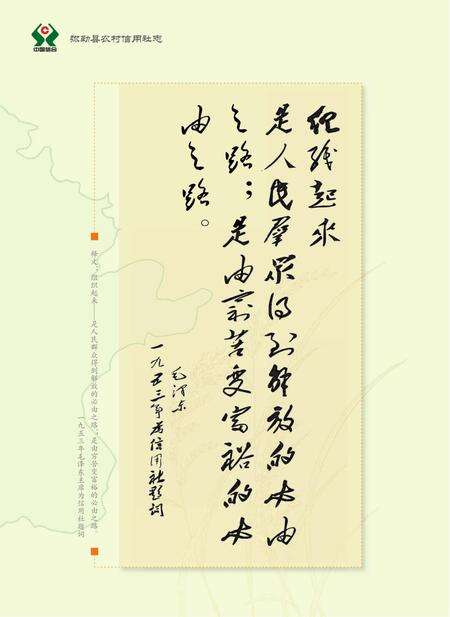 弥勒县农村信用社志
中国信合
组织起来
是人民群众得到解放的必由
之路；是由穷苦变富裕的必
由之路。
毛泽东
一九五三年为信用社题词
释文：组织起来——是人民群众得到解放的必由之路，是由穷苦变富裕的必由之路。
一九五三年毛泽东主席为信用社题词